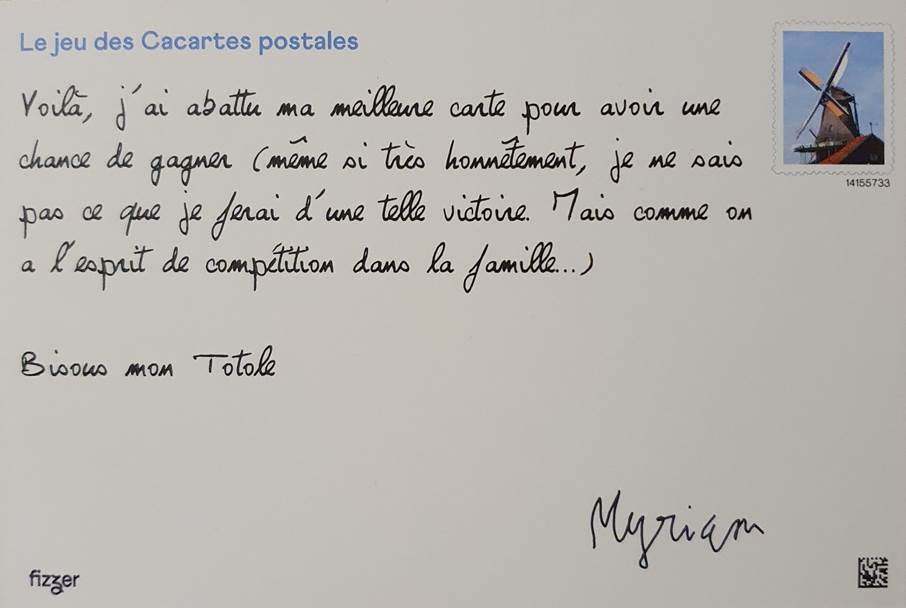 Le jeu des Cacartes postales
Voilà, j'ai abattu ma meilleure carte pour avoir une
chance de gagner (même si très honnêtement, je ne sais
pas ce que je ferai d'une telle victoire. Mais comme on
a l'esprit de compétition dans la famille...)
Bisous mon Totole
Myriam
14155733
fizzer